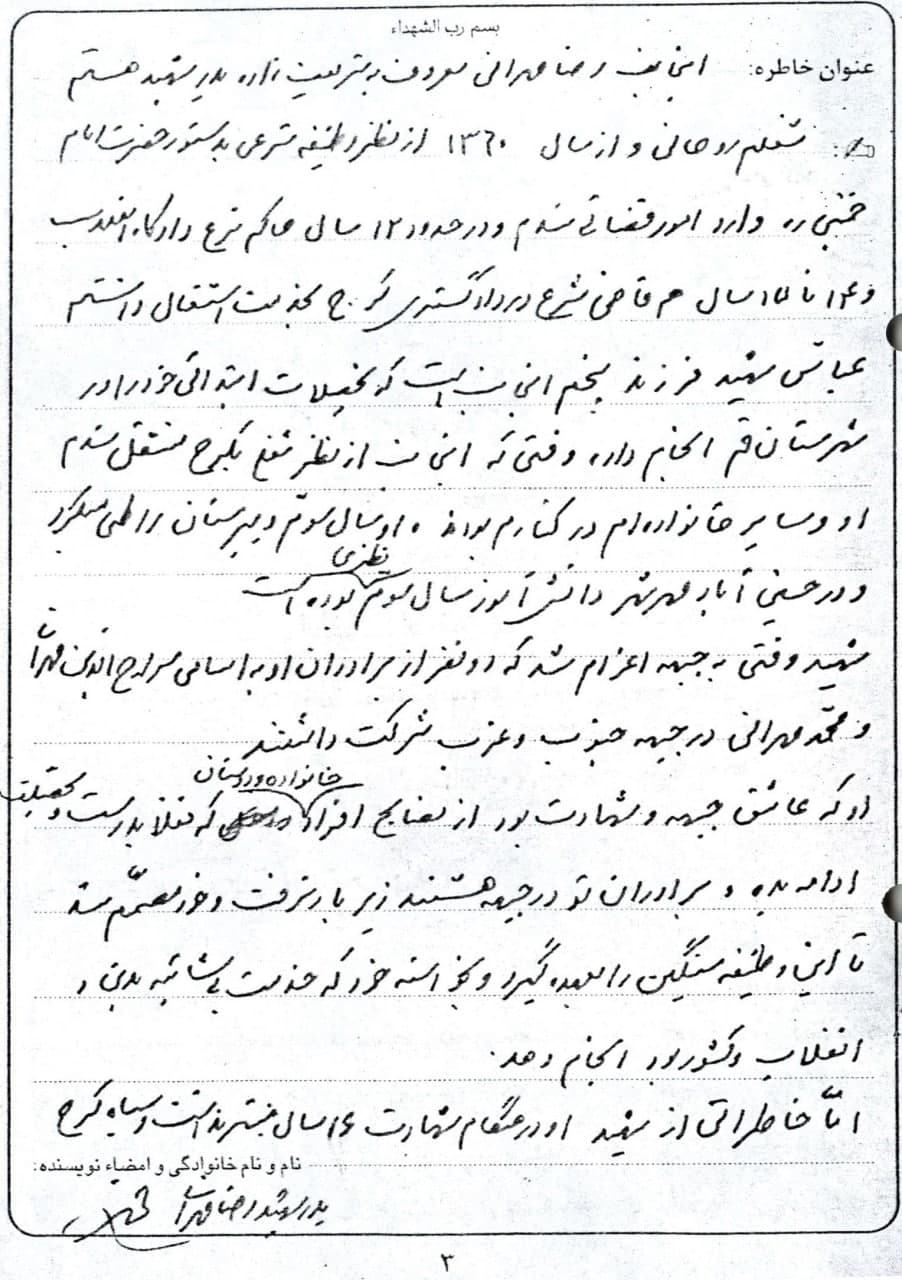 بسم رب الشهداء
عنوان خاطره: اینجانب رضا مهرانی معروف به شریعت زاده پدر شهید هستم
شغلم روحانی و از سال ۱۳۶۰ از نظر وظیفه شرعی به دستور حضرت امام
خمینی ره وارد امور قضائی شدم و در حدود ۱۲ سال حاکم شرع دادگاه انقلاب
و ۱۴ تا ۱۵ سال هم قاضی شرع در دادگستری کرج بخدمت اشتغال داشتم
عباس شهید فرزند پنجم اینجانب است که تحصیلات ابتدائی خود را در
شهرستان قم انجام داده وقتی که اینجانب از نظر شغلی بکرج منتقل شدم
او و سایر خانواده ام در کنارم بودند او سال سوم دبیرستان را طی میکرد
و در حسین آباد مهرشهر دانش آموز سال سوم نظری بوده است
شهید وقتی به جبهه اعزام شد که دو نفر از برادران او به اسامی سراج الدین مهرانی
و محمد مهرانی در جبهه جنوب و غرب شرکت داشتند
او که عاشق جبهه و شهادت بود از نصایح افراد خانواده و دوستان که فعلا بدرست و تحصیلت
ادامه بده و برادران تو در جبهه هستند زیر بار نرفت و خود مصمّم شد
تا این وظیفه سنگین را بعهده گیرد و بخواسته خود که خدمت بی شائبه بدین و
انقلاب و کشور بود انجام دهد.
امّا خاطراتی از شهید او در هنگام شهادت ۱۶ سال بیشتر نداشت و سپاه کرج
نام و نام خانوادگی و امضاء نویسنده:
پدر شهید رضا مهرانی
۳